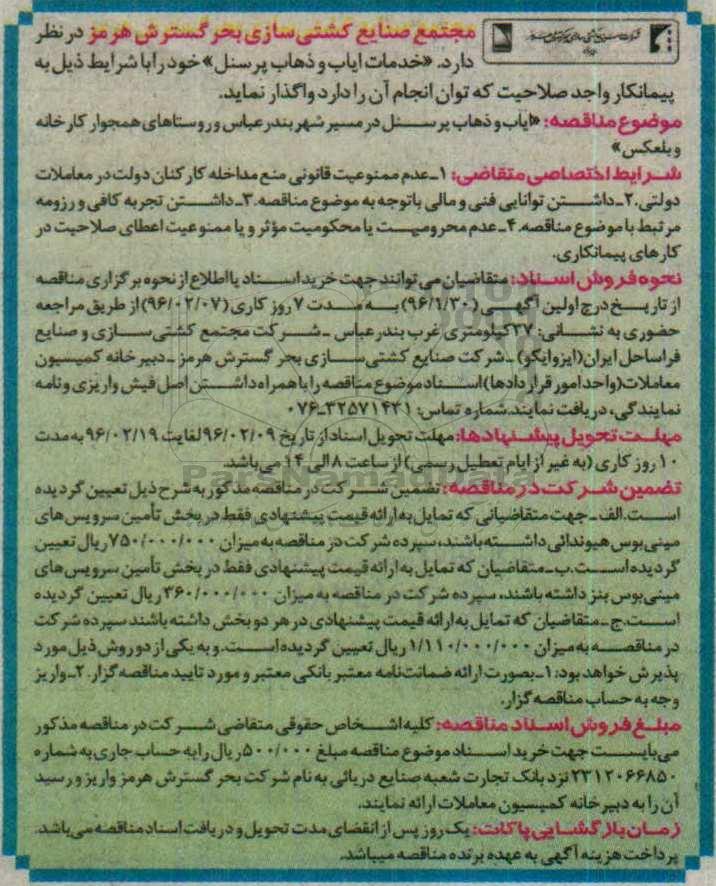 مجتمع صنایع کشتی سازی بحر گسترش هرمز در نظر
دارد. «خدمات ایاب و ذهاب پرسنل» خود را با شرایط ذیل به
پیمانکار واجد صلاحیت که توان انجام آن را دارد واگذار نماید.
موضوع مناقصه: «ایاب و ذهاب پرسنل در مسیر شهر بندرعباس و روستاهای همجوار کارخانه
و بلعکس»
شرایط اختصاصی متقاضی: ۱-عدم ممنوعیت قانونی منع مداخله کارکنان دولت در معاملات
دولتی.۲-داشتن توانایی فنی و مالی باتوجه به موضوع مناقصه.۳-داشتن تجربه کافی و رزومه
مرتبط با موضوع مناقصه. ۴-عدم محرومیت یا محکومیت مؤثر و یا ممنوعیت اعطای صلاحیت در
کارهای پیمانکاری.
نحوه فروش اسناد: متقاضیان می توانند جهت خرید اسناد یا اطلاع از نحوه برگزاری مناقصه
از تاریخ درج اولین آگهی (۹۶/۱/۳۰) به مدت ۷ روز کاری (۹۶/۰۲/۰۷) از طریق مراجعه
حضوری به نشانی: ۳۷ کیلومتری غرب بندرعباس -شرکت مجتمع کشتی سازی و صنایع
فراساحل ایران(ایزوایکو) -شرکت صنایع کشتی سازی بحر گسترش هرمز -دبیرخانه کمیسیون
معاملات(واحد امور قراردادها) اسناد موضوع مناقصه را با همراه داشتن اصل فیش واریزی و نامه
نمایندگی، دریافت نمایند.شماره تماس: ۳۲۵۷۱۴۳۱-۰۷۶
مهلت تحویل پیشنهادها: مهلت تحویل اسناد از تاریخ ۹۶/۰۲/۰۹ لغایت ۹۶/۰۲/۱۹ به مدت
۱۰ روز کاری (به غیر از ایام تعطیل رسمی) از ساعت ۸ الی ۱۴ می باشد.
ParsNamadData
تضمین شرکت در مناقصه: تضمین شرکت در مناقصه مذکور به شرح ذیل تعیین گردیده
است.الف-جهت متقاضیانی که تمایل به ارائه قیمت پیشنهادی فقط در بخش تأمین سرویس های
مینی بوس هیوندائی داشته باشند، سپرده شرکت در مناقصه به میزان ۷۵۰/۰۰۰/۰۰۰ ریال تعیین
گردیده است.ب-متقاضیان که تمایل به ارائه قیمت پیشنهادی فقط در بخش تأمین سرویس های
مینی بوس بنز داشته باشند، سپرده شرکت در مناقصه به میزان ۳۶۰/۰۰۰/۰۰۰ ریال تعیین گردیده
است.ج-متقاضیان که تمایل به ارائه قیمت پیشنهادی در هر دو بخش داشته باشند سپرده شرکت
در مناقصه به میزان ۱/۱۱۰/۰۰۰/۰۰۰ ریال تعیین گردیده است. و به یکی از دو روش ذیل مورد
پذیرش خواهد بود: ۱-بصورت ارائه ضمانت نامه معتبر بانکی معتبر و مورد تایید مناقصه گزار. ۲-واریز
وجه به حساب مناقصه گزار.
مبلغ فروش اسناد مناقصه: کلیه اشخاص حقوقی متقاضی شرکت در مناقصه مذکور
می بایست جهت خرید اسناد موضوع مناقصه مبلغ ۵۰۰/۰۰۰ ریال را به حساب جاری به شماره
۲۳۱۲۰۶۶۸۵۰ نزد بانک تجارت شعبه صنایع دریائی به نام شرکت بحر گسترش هرمز واریز و رسید
آن را به دبیرخانه کمیسیون معاملات ارائه نمایند.
زمان بازگشایی پاکات: یک روز پس از انقضای مدت تحویل و دریافت اسناد مناقصه می باشد.
پرداخت هزینه آگهی به عهده برنده مناقصه میباشد.